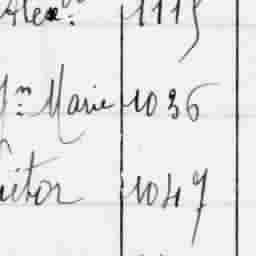 Alexr. 1115
Jn Marie 1036
Victor 1047